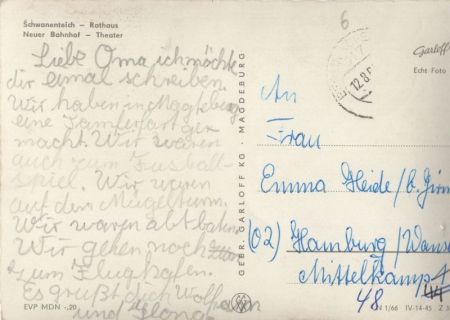 Schwanenteich – Rathaus
Neuer Bahnhof – Theater
Liebe Oma ich möchte
dir einmal schreiben.
Wir haben in Magdeburg
eine Damferfart ge
macht. Wir waren
auch zum Fussball-
spiel. Wir waren
auf dem
Wir waren alt baden
Wir gehen noch
zum Flughafen.
Es grüßt dich Wolfram
und
EVP MDN -,20
GEBR. GARLOFF KG · MAGDEBURG
6
12.8.6
Garloff
Echt Foto
An
Frau
Emma Heide/b.
(02) Hamburg/Wands
Mittelkamp 44
48
N 1/66 IV-14-45 Z 3